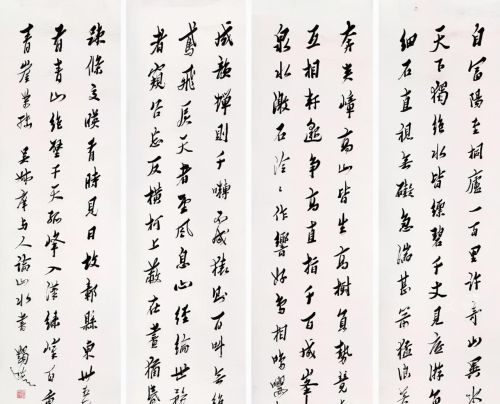 自富陽至桐廬一百里許奇山異水
天下獨絶水皆縹碧千丈見底游魚
細石直視無礙急湍甚箭猛浪若
奔夾嶂高山皆生高樹負勢競
互相軒邈爭高直指千百成峯
泉水激石泠泠作響好鳥相鳴嚶
成韻蟬則千囀不成猿則百叫無絶
鳶飛戾天者望風息心經綸世務
者窺谷忘反橫柯上蔽在晝猶昏
疎條交暎有時見日故鄣縣東卅五
有青山絶壁干天孤峰入漢緑嶂百重
青崖 吳 与人論山水書